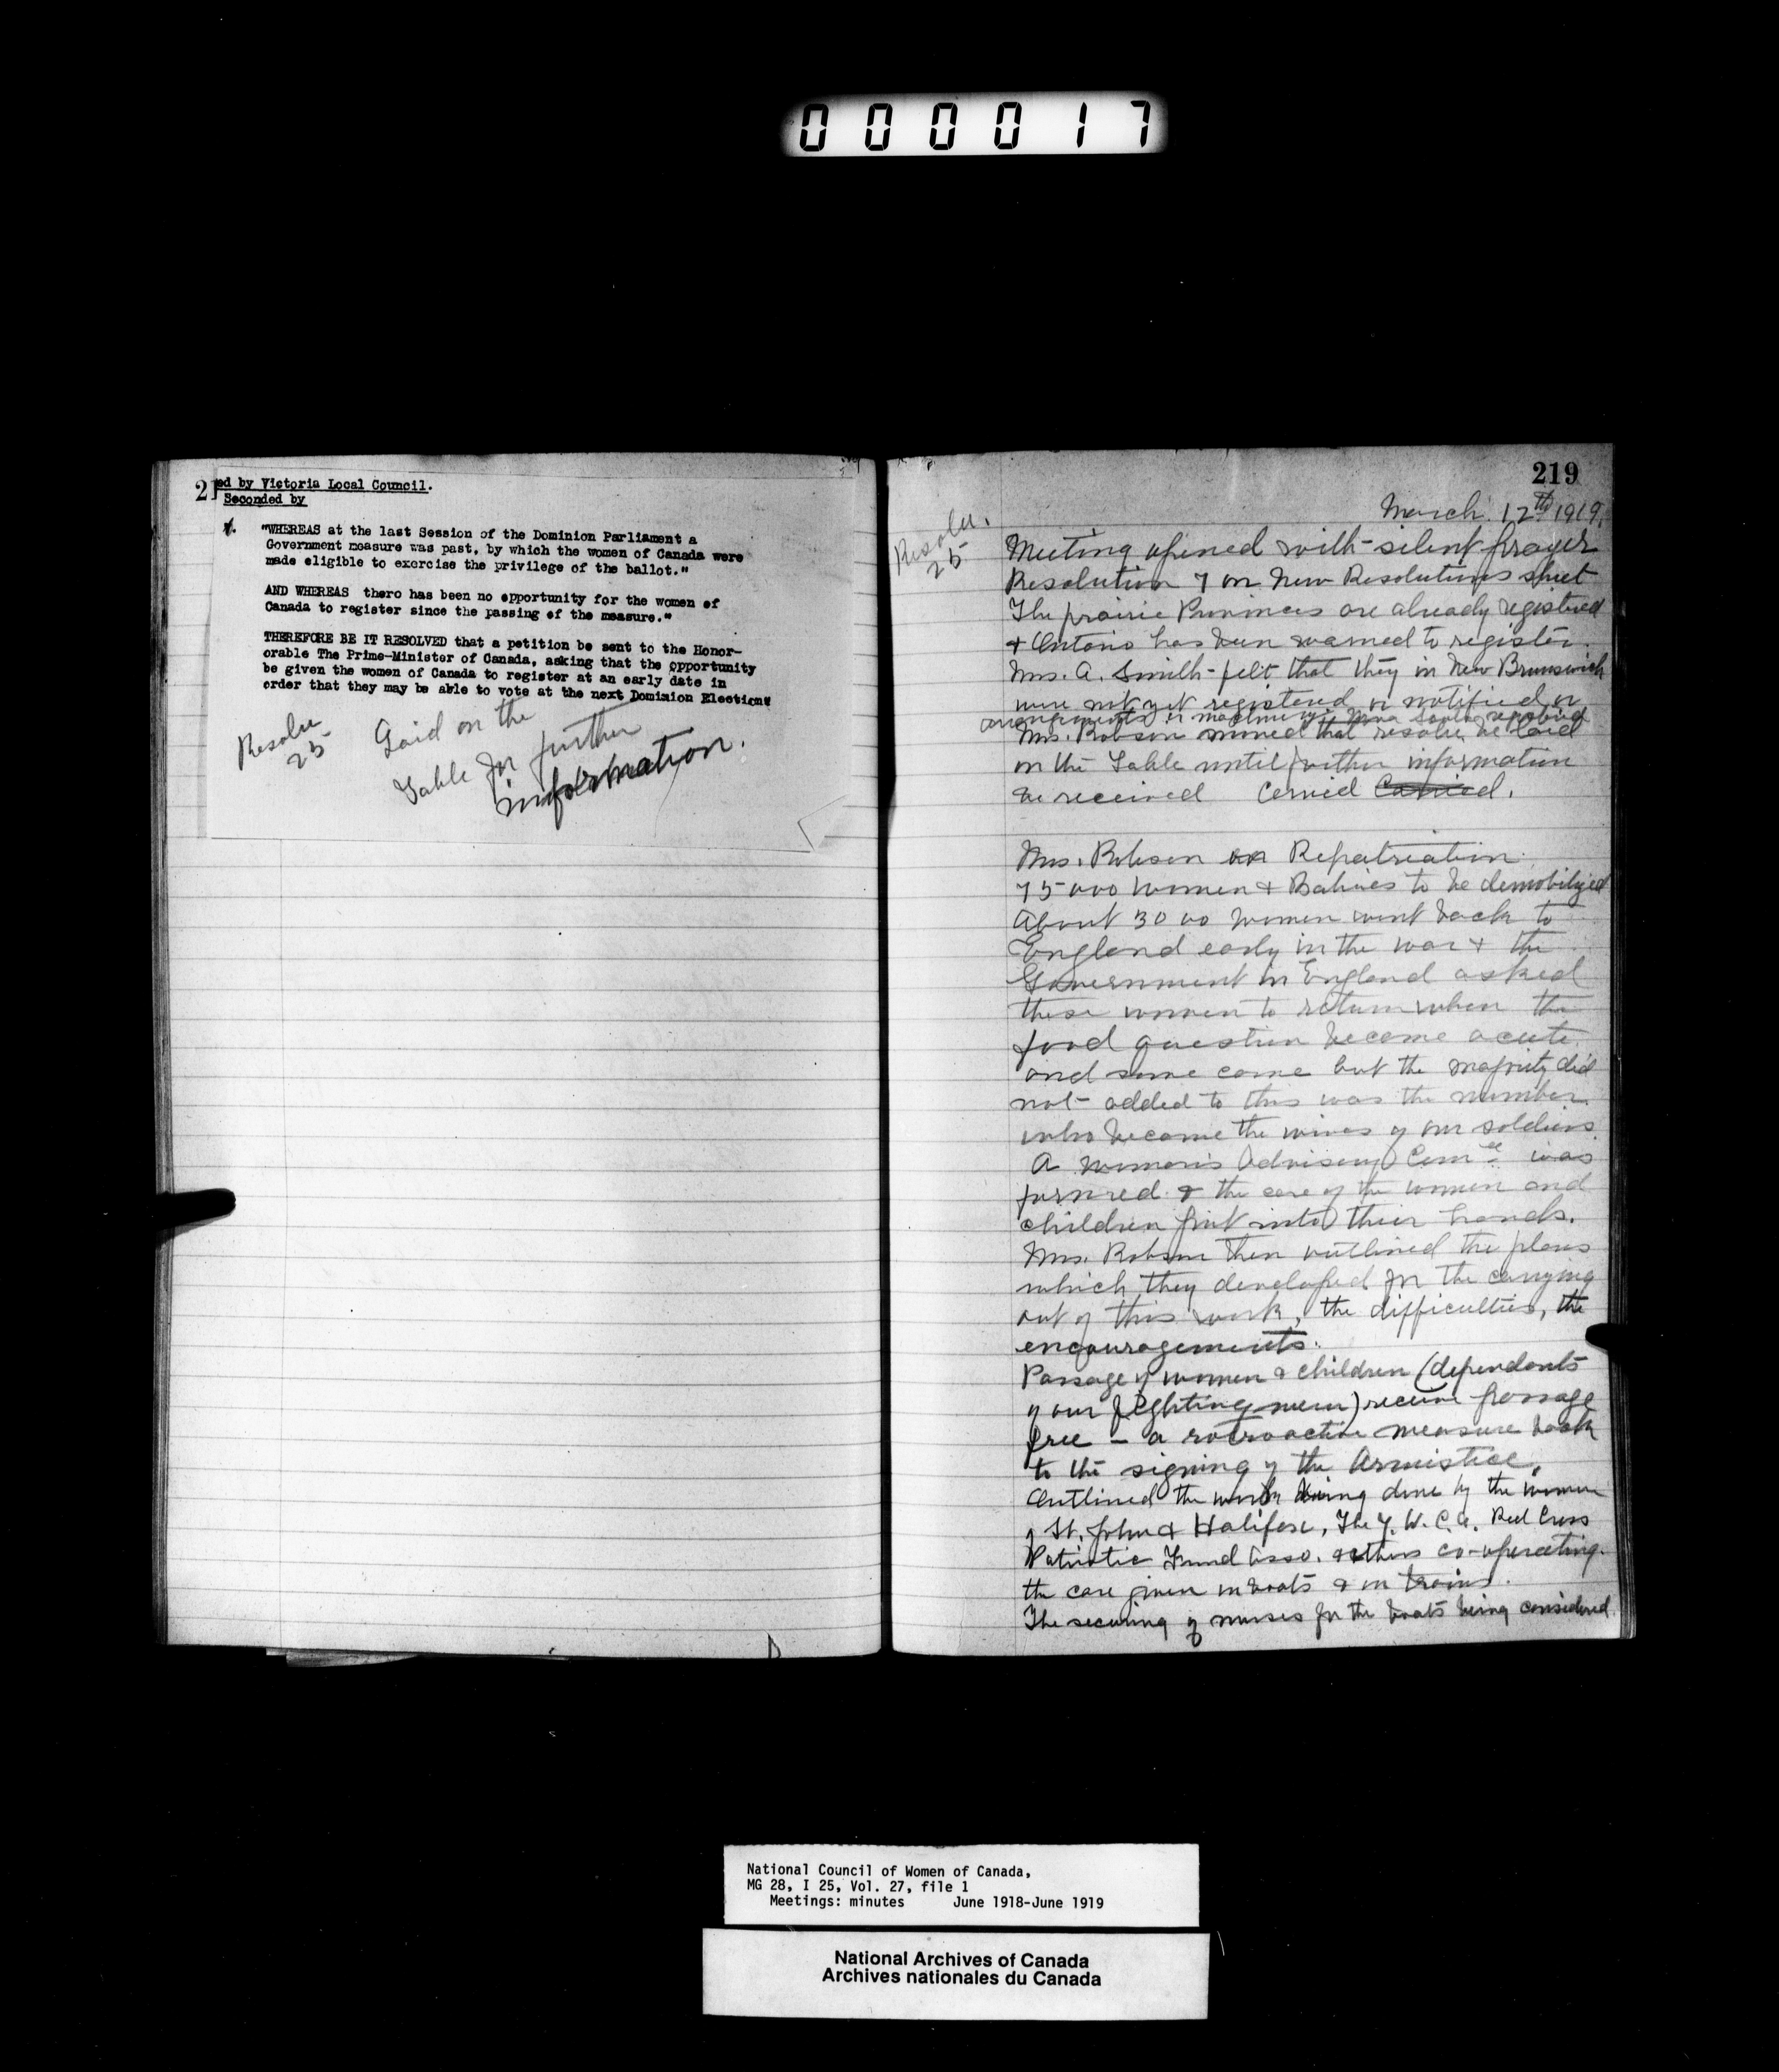 000017
2
ed by Victoria Local Council.
Seconded by
"WHEREAS at the last Session of the Dominion Parliament a
Government measure was past, by which the women of Canada were
made eligible to exercise the privilege of the ballot."
AND WHEREAS there has been no opportunity for the women of
Canada to register since the passing of the measure."
THEREFORE BE IT RESOLVED that a petition be sent to the Honor-
orable The Prime-Minister of Canada, asking that the opportunity
be given the women of Canada to register at an early date in
order that they may be able to vote at the next Dominion Election"
Resolu
25
Laid on the
Table for further
information.
219
March 12th 1919.
Resolu.
25
Meeting opened with silent prayer
Resolution 7 on New Resolutions sheet
The prairie Provinces are already registered
& Ontario has been warned to register.
Mrs. A. Smith felt that they in New Brunswick
were not yet registered or notified or
arrangements or machinery
Mrs. Robson moved that resolu. be laid
on the Table until further information
be received Carried Carried.
Mrs. Robson on Repatriation.
75000 women & Babies to be demobilized
About 30 00 women went back to
England early in the war & the
Government in England asked
these women to return when the
food question became acute
and some came but the majority did
not added to this was the number
who became the wives of our soldiers.
A Women's Advisory Comee was
formed & the care of the women and
children put into their hands.
Mrs. Robson then outlined the plans
which they developed for the carrying
out of this work, the difficulties, the
encouragements.
Passage of women & children (dependants
of our fighting men) receive passage
free - a retroactive measure back
to the signing of the Armistice.
Outlined the work being done by the women
of St. John & Halifax, The Y.W.C.A. Red Cross
Patriotic Fund Asso. & others co-operating.
the care given on boats & on trains.
The securing of nurses for the boats being considered.
National Council of Women of Canada,
MG 28, I 25, Vol. 27, file 1
Meetings: minutes June 1918-June 1919
National Archives of Canada
Archives nationales du Canada